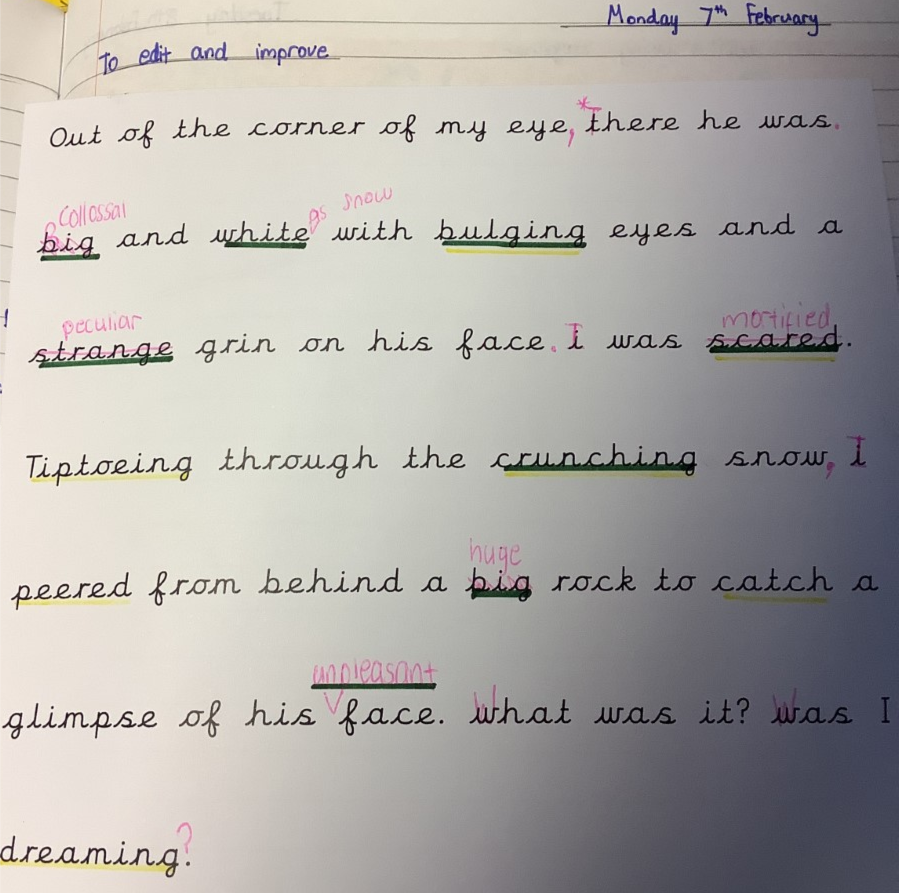 Monday 7th February
To edit and improve
Out of the corner of my eye, *there he was.
Collossal as snow
big and white with bulging eyes and a
peculiar mortified
strange grin on his face. I was scared.
Tiptoeing through the crunching snow, I
huge
peered from behind a big rock to catch a
unpleasant
glimpse of his face. What was it? Was I
dreaming?